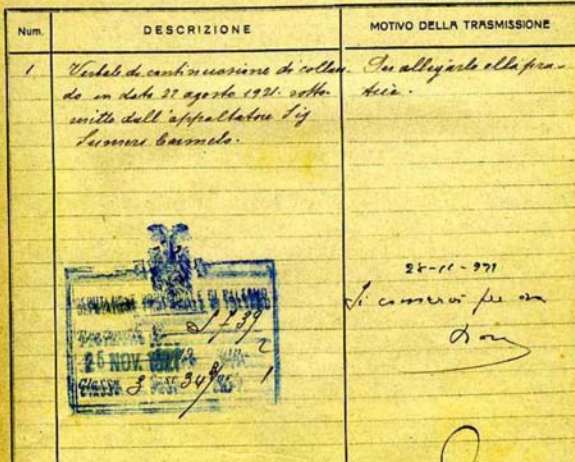 Num.
DESCRIZIONE
MOTIVO DELLA TRASMISSIONE
1
Verbale di continuazione di collau-
do in data 27 agosto 1921. sotto-
scritto dall'appaltatore Sig
Carmelo.
Per allegarlo alla pra-
tica.
DEPUTAZIONE PROVINCIALE DI PALERMO
5739
25 NOV. 1921
2
Classe 3 34 1
28-11-921
Si conservi per ora